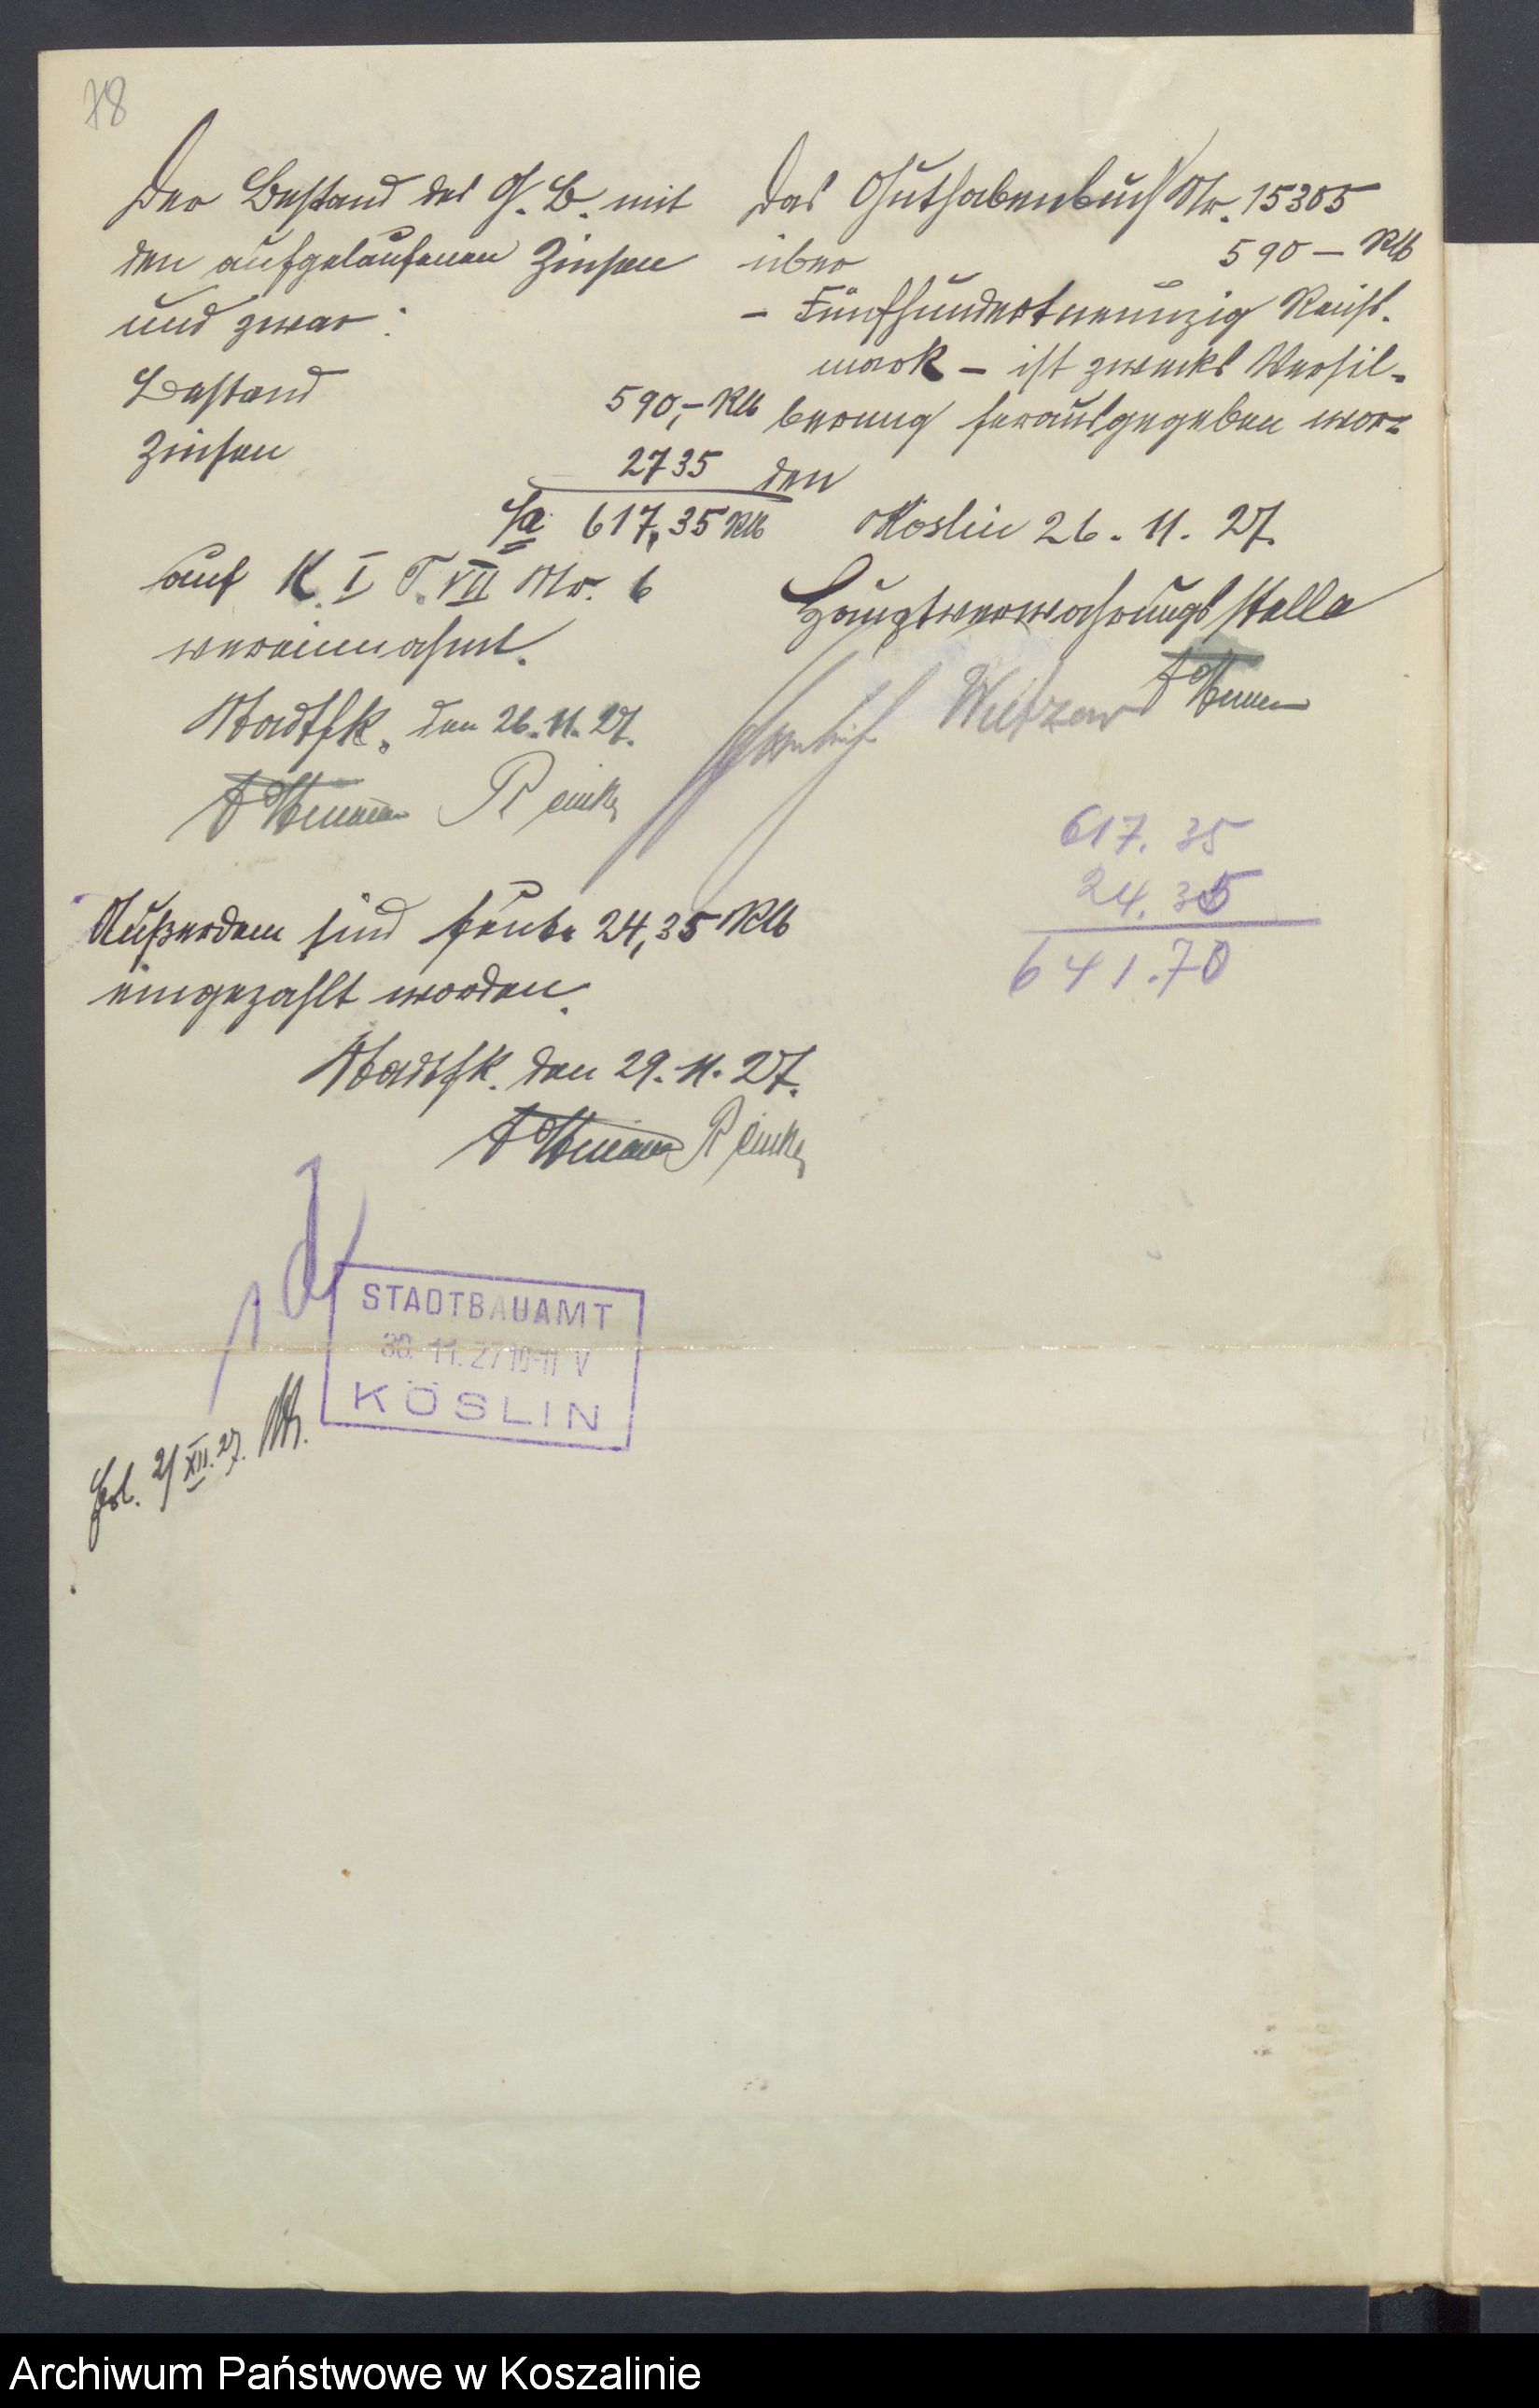 78
Der Bestand des G. B. mit
den aufgelaufenen Zinsen
und zwar:
Bestand 590,- RM
Zinsen 27 35
Sa 617,35 RM
auf K. I T. VII Nr. 6
vereinnahmt.
Stadthk. den 26.11.27.
Reinke
Außerdem sind heute 24,35 RM
eingezahlt worden.
Stadthk. den 29.11.27.
Reinke
Das Guthabenbuch Nr. 15305
über 590 — RM
- Fünfhundertneunzig Reichs-
mark - ist zwecks Versil-
berung herausgegeben wor-
den
Köslin 26. 11. 27.
Hauptverwahrungsstelle
617. 35
24. 35
641.70
STADTBAUAMT
30. 11. 27 10-11 V
KÖSLIN
2/XII. 27.
Archiwum Państwowe w Koszalinie